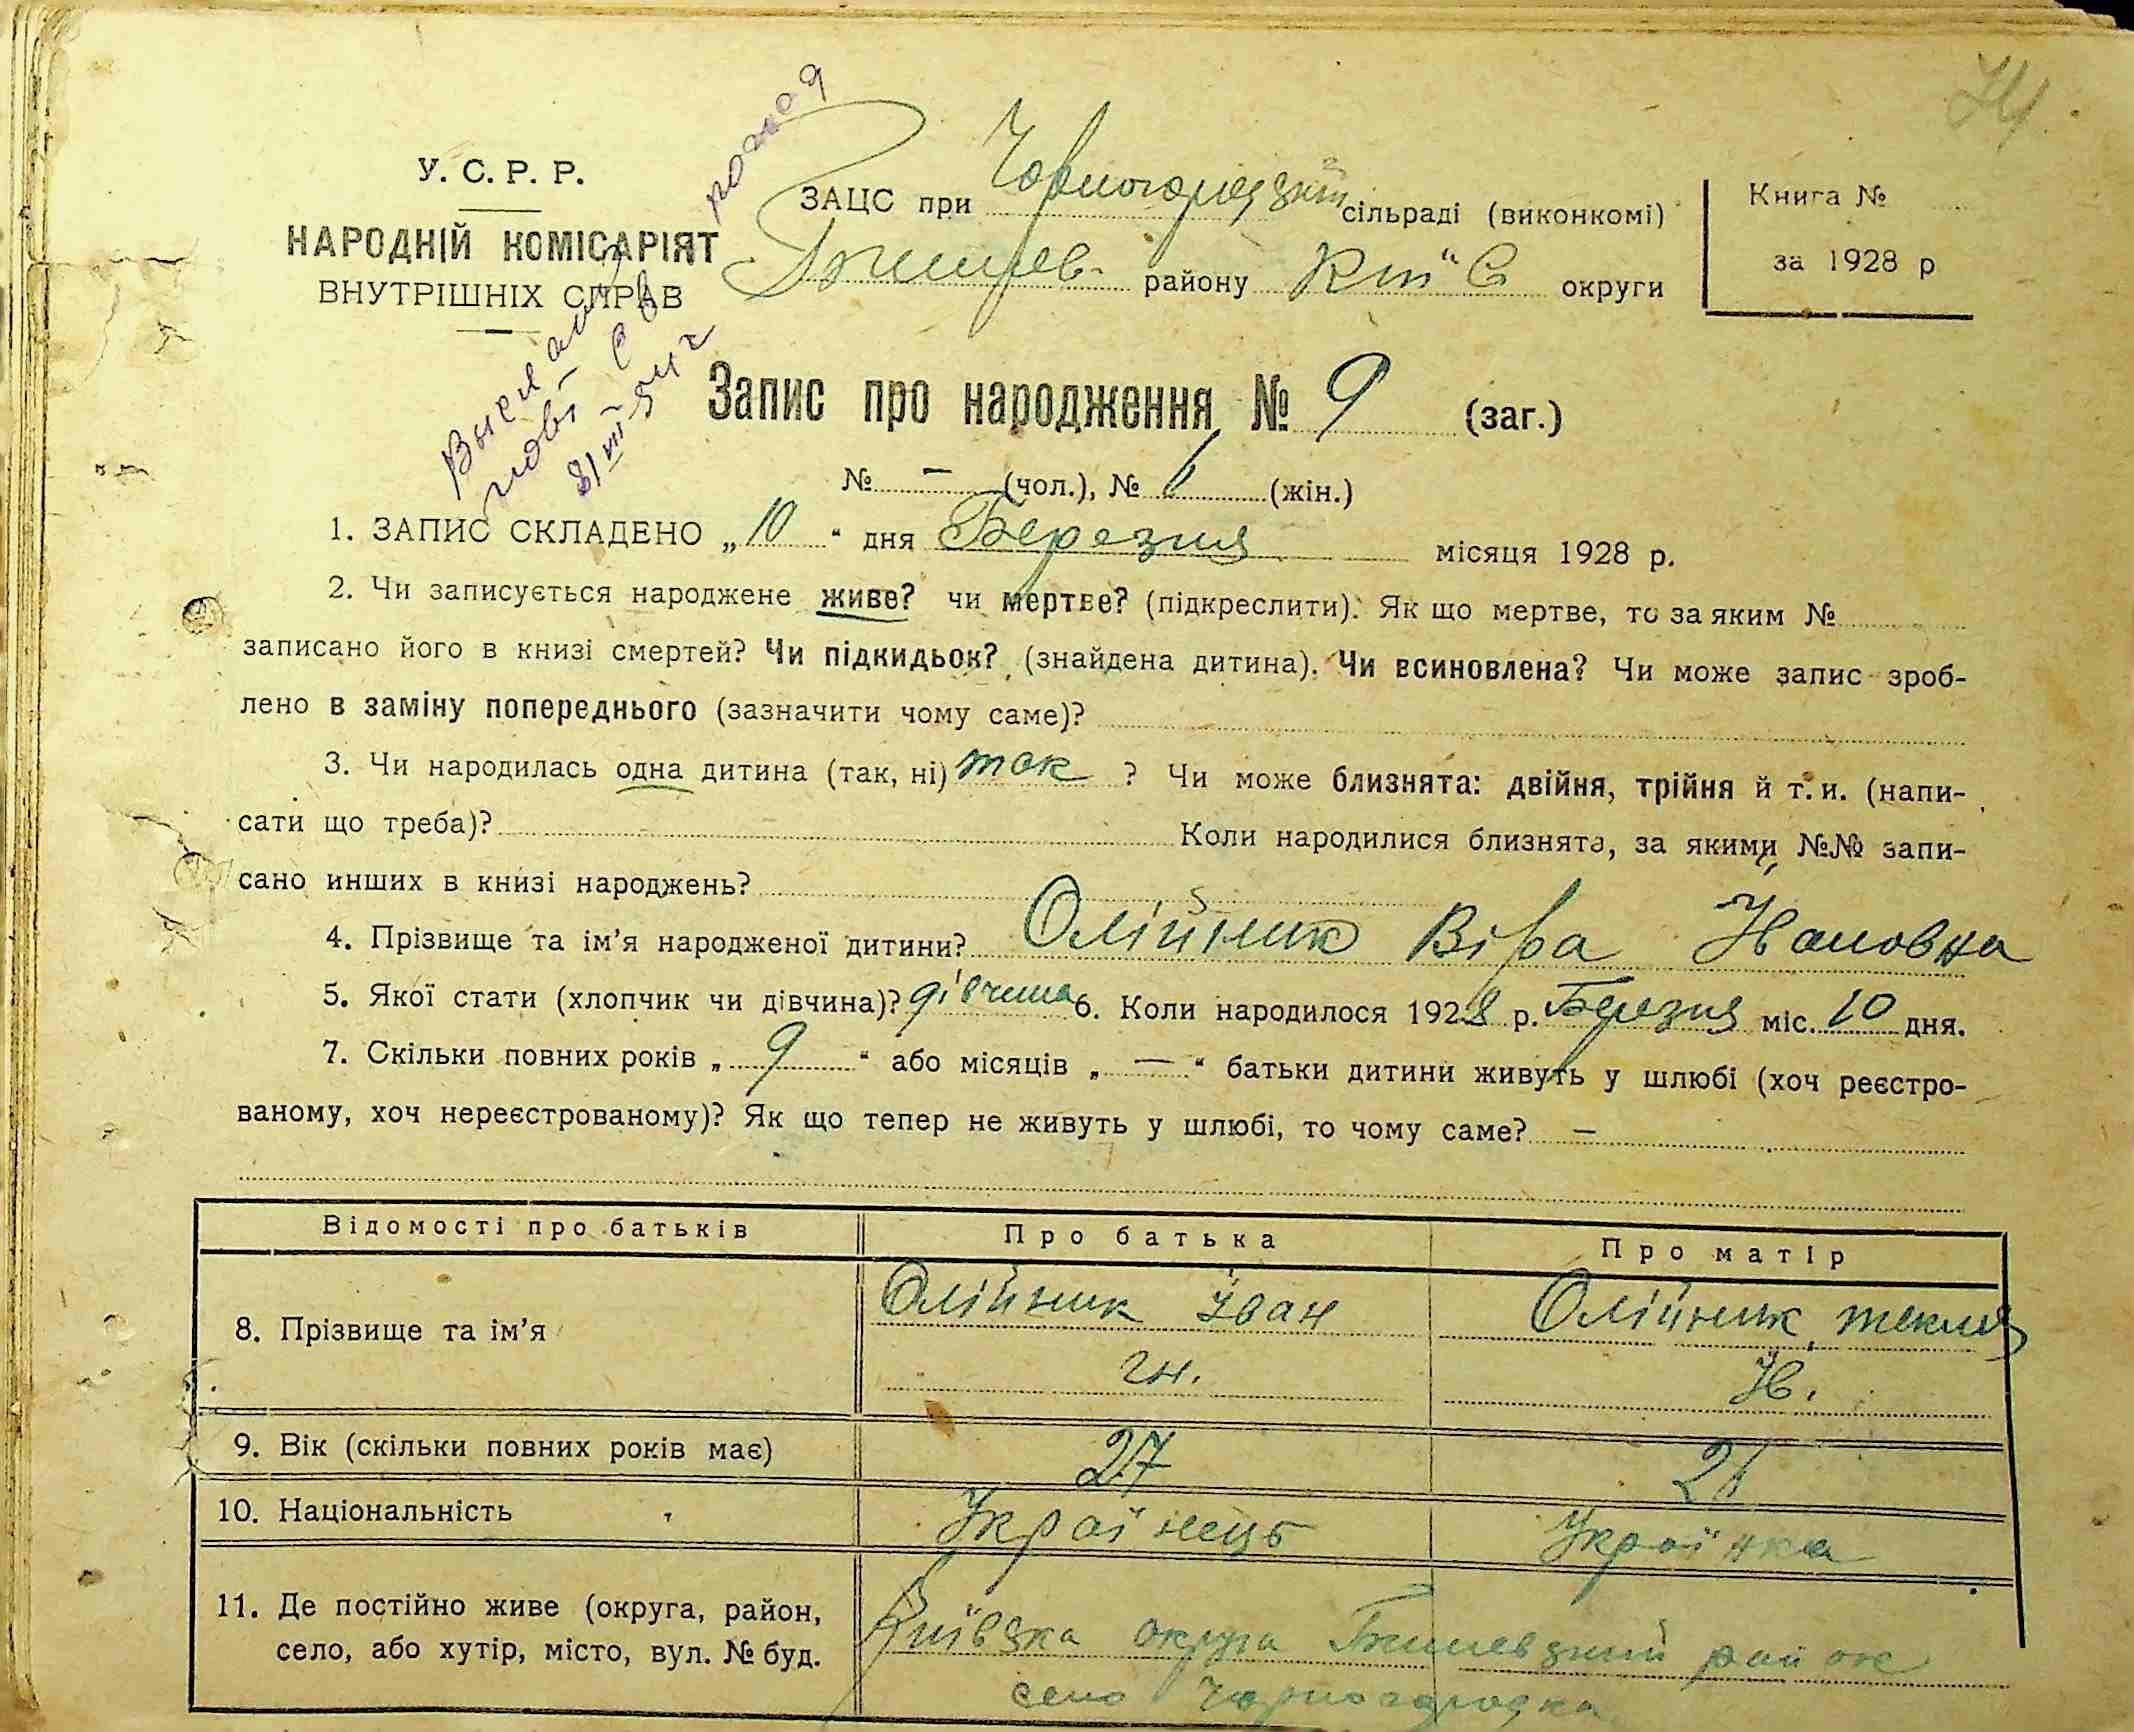 74
У. С. Р. Р.
НАРОДНІЙ КОМІСАРІЯТ
ВНУТРІШНІХ СПРАВ
ЗАЦС при Чорногородзкій сільраді (виконкомі)
району Київ округи
Книга №
за 1928 р
Запис про народження № 9 (заг.)
№ — (чол.), № 6 (жін.)
1. ЗАПИС СКЛАДЕНО „10“ дня Березня місяця 1928 р.
2. Чи записується народжене живе? чи мертве? (підкреслити). Як що мертве, то за яким №
записано його в книзі смертей? Чи підкидьок? (знайдена дитина). Чи всиновлена? Чи може запис зроб-
лено в заміну попереднього (зазначити чому саме)?
3. Чи народилась одна дитина (так, ні) так ? Чи може близнята: двійня, трійня й т. и. (напи-
сати що треба)? Коли народилися близнята, за якими №№ запи-
сано инших в книзі народжень?
4. Прізвище та ім’я народженої дитини? Олійник Віра Івановна
5. Якої стати (хлопчик чи дівчина)? дівчина 6. Коли народилося 1928 р. Березня міс. 10 дня.
7. Скільки повних років „ 9 “ або місяців „ — “ батьки дитини живуть у шлюбі (хоч реєстро-
ваному, хоч нереєстрованому)? Як що тепер не живуть у шлюбі, то чому саме? —
Відомості про батьків Про батька Про матір
8. Прізвище та ім’я Олійник Іван Олійник текля
гн. Ів.
9. Вік (скільки повних років має) 27 26
10. Національність Українець Українка
11. Де постійно живе (округа, район,
село, або хутір, місто, вул. № буд.
Київзка округа район
село Чорногородка